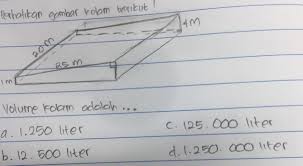 Perhatikan gambar kolam berikut!
4M
20m
25 m
1m
Volume kolam adalah ...
a. 1.250 liter
c. 125.000 liter
b. 12.500 liter
d. 1.250.000 liter